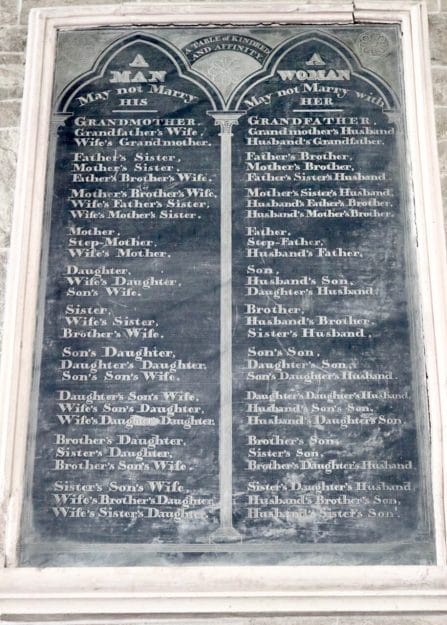 A TABLE of KINDRED
AND AFFINITY.
A
MAN
May not Marry
HIS
GRANDMOTHER,
Grandfather's Wife,
Wife's Grandmother.
Father's Sister,
Mother's Sister,
Father's Brother's Wife.
Mother's Brother's Wife,
Wife's Father's Sister,
Wife's Mother's Sister.
Mother,
Step-Mother,
Wife's Mother.
Daughter,
Wife's Daughter,
Son's Wife.
Sister,
Wife's Sister,
Brother's Wife.
Son's Daughter,
Daughter's Daughter,
Son's Son's Wife.
Daughter's Son's Wife.
Wife's Son's Daughter,
Wife's Daughter's Daughter.
Brother's Daughter,
Sister's Daughter,
Brother's Son's Wife.
Sister's Son's Wife.
Wife's Brother's Daughter
Wife's Sister's Daughter.
A
WOMAN
May not Marry with
HER
GRANDFATHER,
Grandmother's Husband
Husband's Grandfather.
Father's Brother,
Mother's Brother,
Father's Sister's Husband.
Mother's Sister's Husband,
Husband's Father's Brother,
Husband's Mother's Brother.
Father.
Step-Father,
Husband's Father,
Son.
Husband's Son,
Daughter's Husband
Brother,
Husband's Brother.
Sister's Husband.
Son's Son.
Daughter's Son,
Son's Daughter's Husband.
Daughter's Daughter's Husband,
Husband's Son's Son.
Husband's Daughter's Son.
Brother's Son.
Sister's Son.
Brother's Daughter's Husband
Sister's Daughter's Husband,
Husband's Brother's Son,
Husband's Sister's Son.